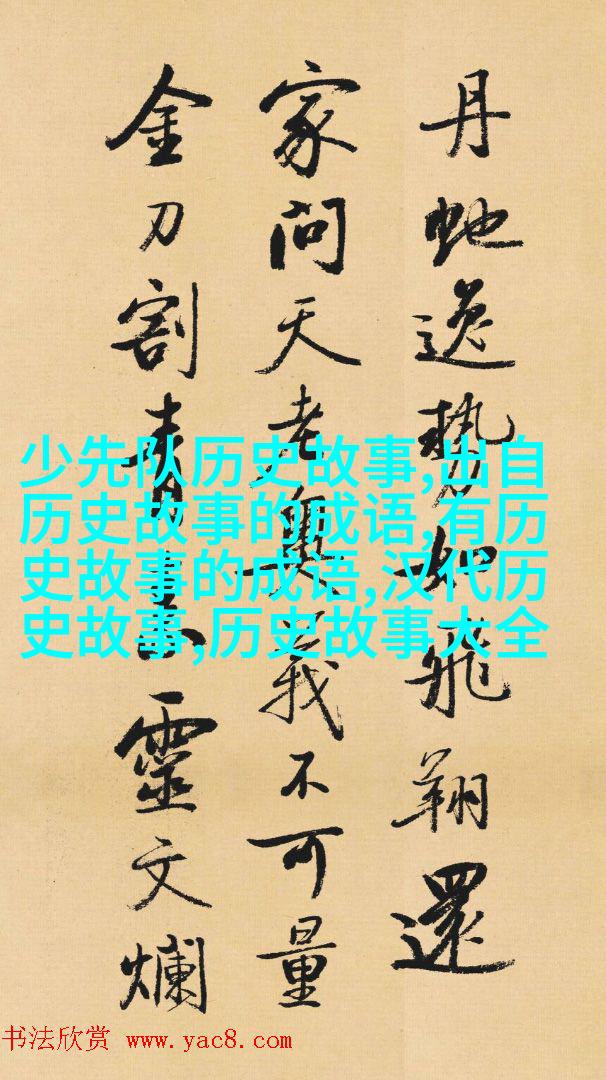 丹虵逸勢如飛翔還
家問天老奧義不可量
金刀割青靈文爛
少先队历史故事,出自
历史故事的成语,有历
史故事的成语,汉代历
史故事,历史故事大全
书法欣赏 www.yac8.com